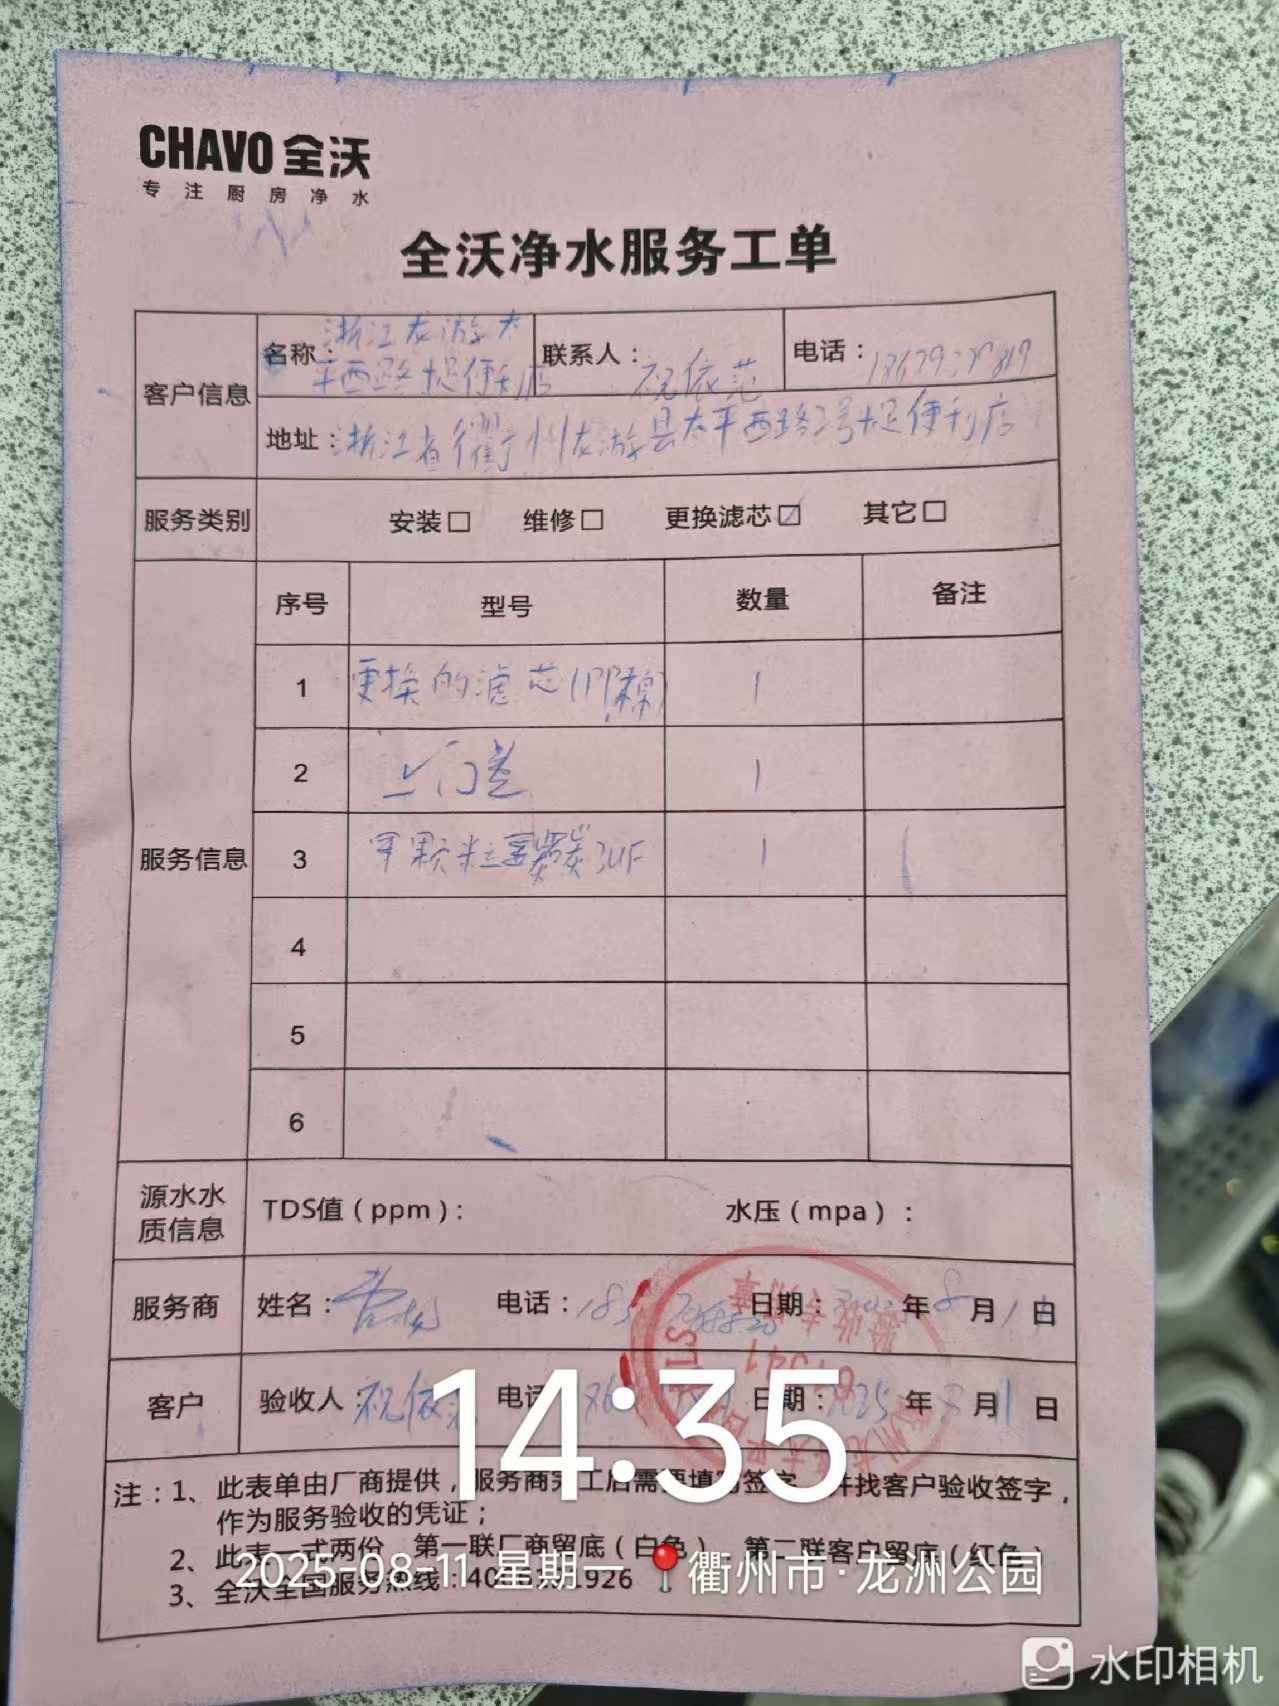 CHAVO 全沃
专注厨房净水
全沃净水服务工单
客户信息
名称：浙江龙游太
平西路 便利店
联系人：祝依范
电话：
地址：浙江省衢州龙游县太平西路2号 便利店
服务类别
安装□ 维修□ 更换滤芯☑ 其它□
服务信息
序号 型号 数量 备注
1 更换的滤芯(PP棉) 1
2 上门费 1
3 果颗粒 炭 UF 1
4
5
6
源水水质信息
TDS值（ppm）： 水压（mpa）：
服务商 姓名： 电话：185 日期： 年8月 日
客户 验收人：祝依 电话 日期：2025年 月11日
14:35
注：1、此表单由厂商提供，服务商完工后需要填写签字，并找客户验收签字，
作为服务验收的凭证；
2、此表一式两份，第一联厂商留底（白色），第二联客户留底（红色）
3、全沃全国服务热线：400 1926
2025-08-11 星期一 衢州市·龙洲公园
水印相机